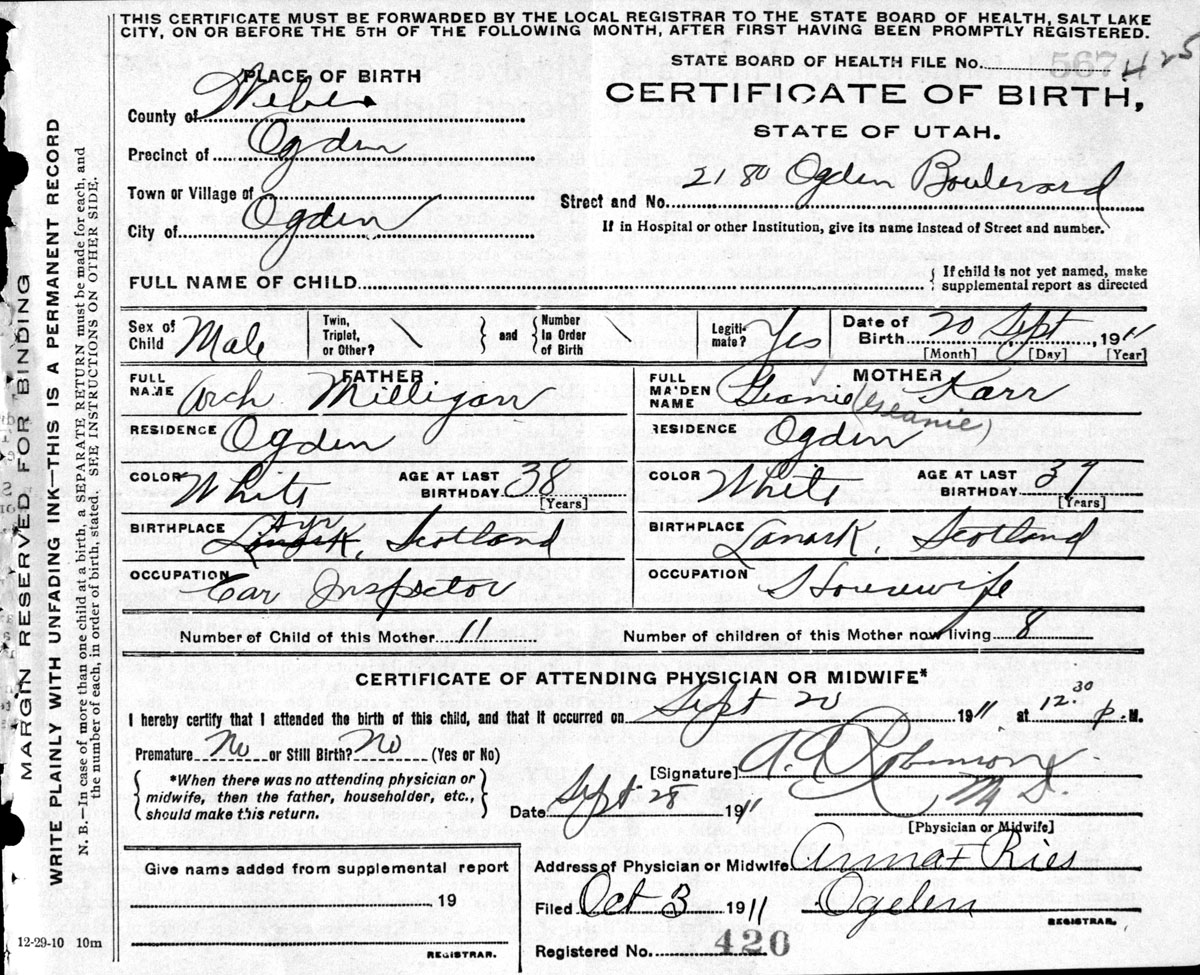 THIS CERTIFICATE MUST BE FORWARDED BY THE LOCAL REGISTRAR TO THE STATE BOARD OF HEALTH, SALT LAKE
CITY, ON OR BEFORE THE 5TH OF THE FOLLOWING MONTH, AFTER FIRST HAVING BEEN PROMPTLY REGISTERED.
STATE BOARD OF HEALTH FILE No. 567 425
CERTIFICATE OF BIRTH,
STATE OF UTAH.
PLACE OF BIRTH
County of Weber
Precinct of Ogden
Town or Village of
City of Ogden
Street and No. 2180 Ogden Boulevard
If in Hospital or other Institution, give its name Instead of Street and number.
FULL NAME OF CHILD
If child is not yet named, make
supplemental report as directed
Sex of Child Male
Twin, Triplet, or Other? and Number in Order of Birth
Legitimate? Yes
Date of Birth 20 Sept 1911
[Month] [Day] [Year]
FATHER.
FULL NAME Arch Milligan
RESIDENCE Ogden
COLOR White AGE AT LAST BIRTHDAY 38
[Years]
BIRTHPLACE Lanark, Ayr Scotland
OCCUPATION Car Inspector
MOTHER
FULL MAIDEN NAME Geanie Karr
(Jeanie)
RESIDENCE Ogden
COLOR White AGE AT LAST BIRTHDAY 37
[Years]
BIRTHPLACE Lanark, Scotland
OCCUPATION Housewife
Number of Child of this Mother 11 Number of children of this Mother now living 8
CERTIFICATE OF ATTENDING PHYSICIAN OR MIDWIFE*
I hereby certify that I attended the birth of this child, and that it occurred on Sept 20 1911 at 12.30 P. M.
Premature No or Still Birth? No (Yes or No)
*When there was no attending physician or
midwife, then the father, householder, etc.,
should make this return.
[Signature] Robinson
M D.
Date Sept 28 1911
[Physician or Midwife]
Give name added from supplemental report
19
REGISTRAR.
Address of Physician or Midwife Anna F Ries
Filed Oct 3 1911 Ogden
REGISTRAR.
Registered No. 420
12-29-10 10m
MARGIN RESERVED FOR BINDING
WRITE PLAINLY WITH UNFADING INK—THIS IS A PERMANENT RECORD
N. B.—In case of more than one child at a birth, a SEPARATE RETURN must be made for each, and
the number of each, in order of birth, stated. SEE INSTRUCTIONS ON OTHER SIDE.